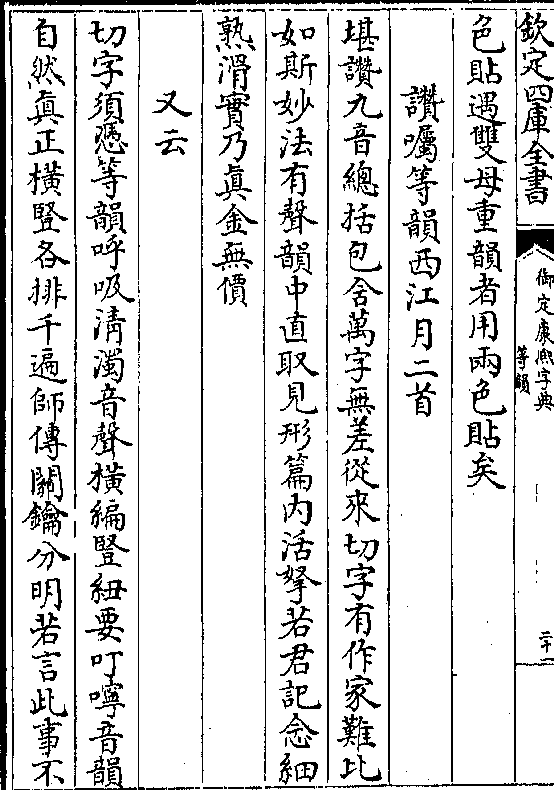 欽定四庫全書
御定康熙字典
等韻
二十二
色貼遇雙母重韻者用兩色貼矣
讚囑等韻西江月二首
堪讚九音總括包含萬字無差從來切字有作家難比
如斯妙法有聲韻中直取見形篇内活拏若君記念細
熟滑實乃眞金無價
又云
切字須憑等韻呼吸清濁音聲橫編豎紐要叮嚀音韻
自然眞正橫豎各排千遍師傳關鑰分明若言此事不